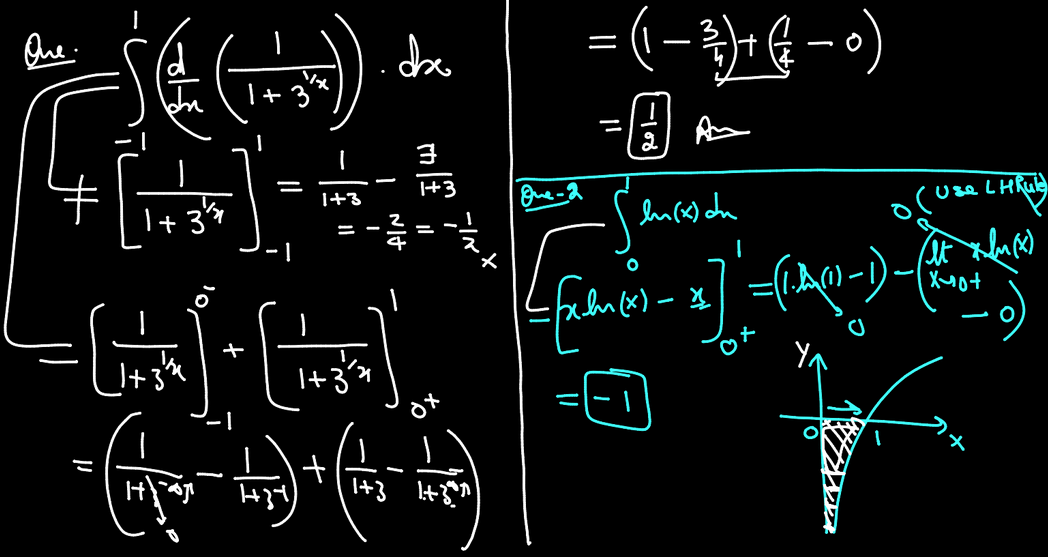 Que.
∫_{-1}^{1} (d/dx (1/(1+3^{1/x}))) . dx
≠ [1/(1+3^{1/x})]_{-1}^{1} = 1/(1+3) - 3/(1+3)
= -2/4 = -1/2 ×
= [1/(1+3^{1/x})]_{-1}^{0^-} + [1/(1+3^{1/x})]_{0^+}^{1}
= (1/(1+3^{-∞}) - 1/(1+3^{-1})) + (1/(1+3) - 1/(1+3^{∞}))
0
= (1 - 3/4) + (1/4 - 0)
= 1/2 Ans
Que-2
∫_{0}^{1} ln(x) dx
(use LH Rule)
= [x.ln(x) - x]_{0^+}^{1} = (1.ln(1) - 1) - (lt_{x→0+} x.ln(x) - 0)
0
0
= -1
y
0
1
x